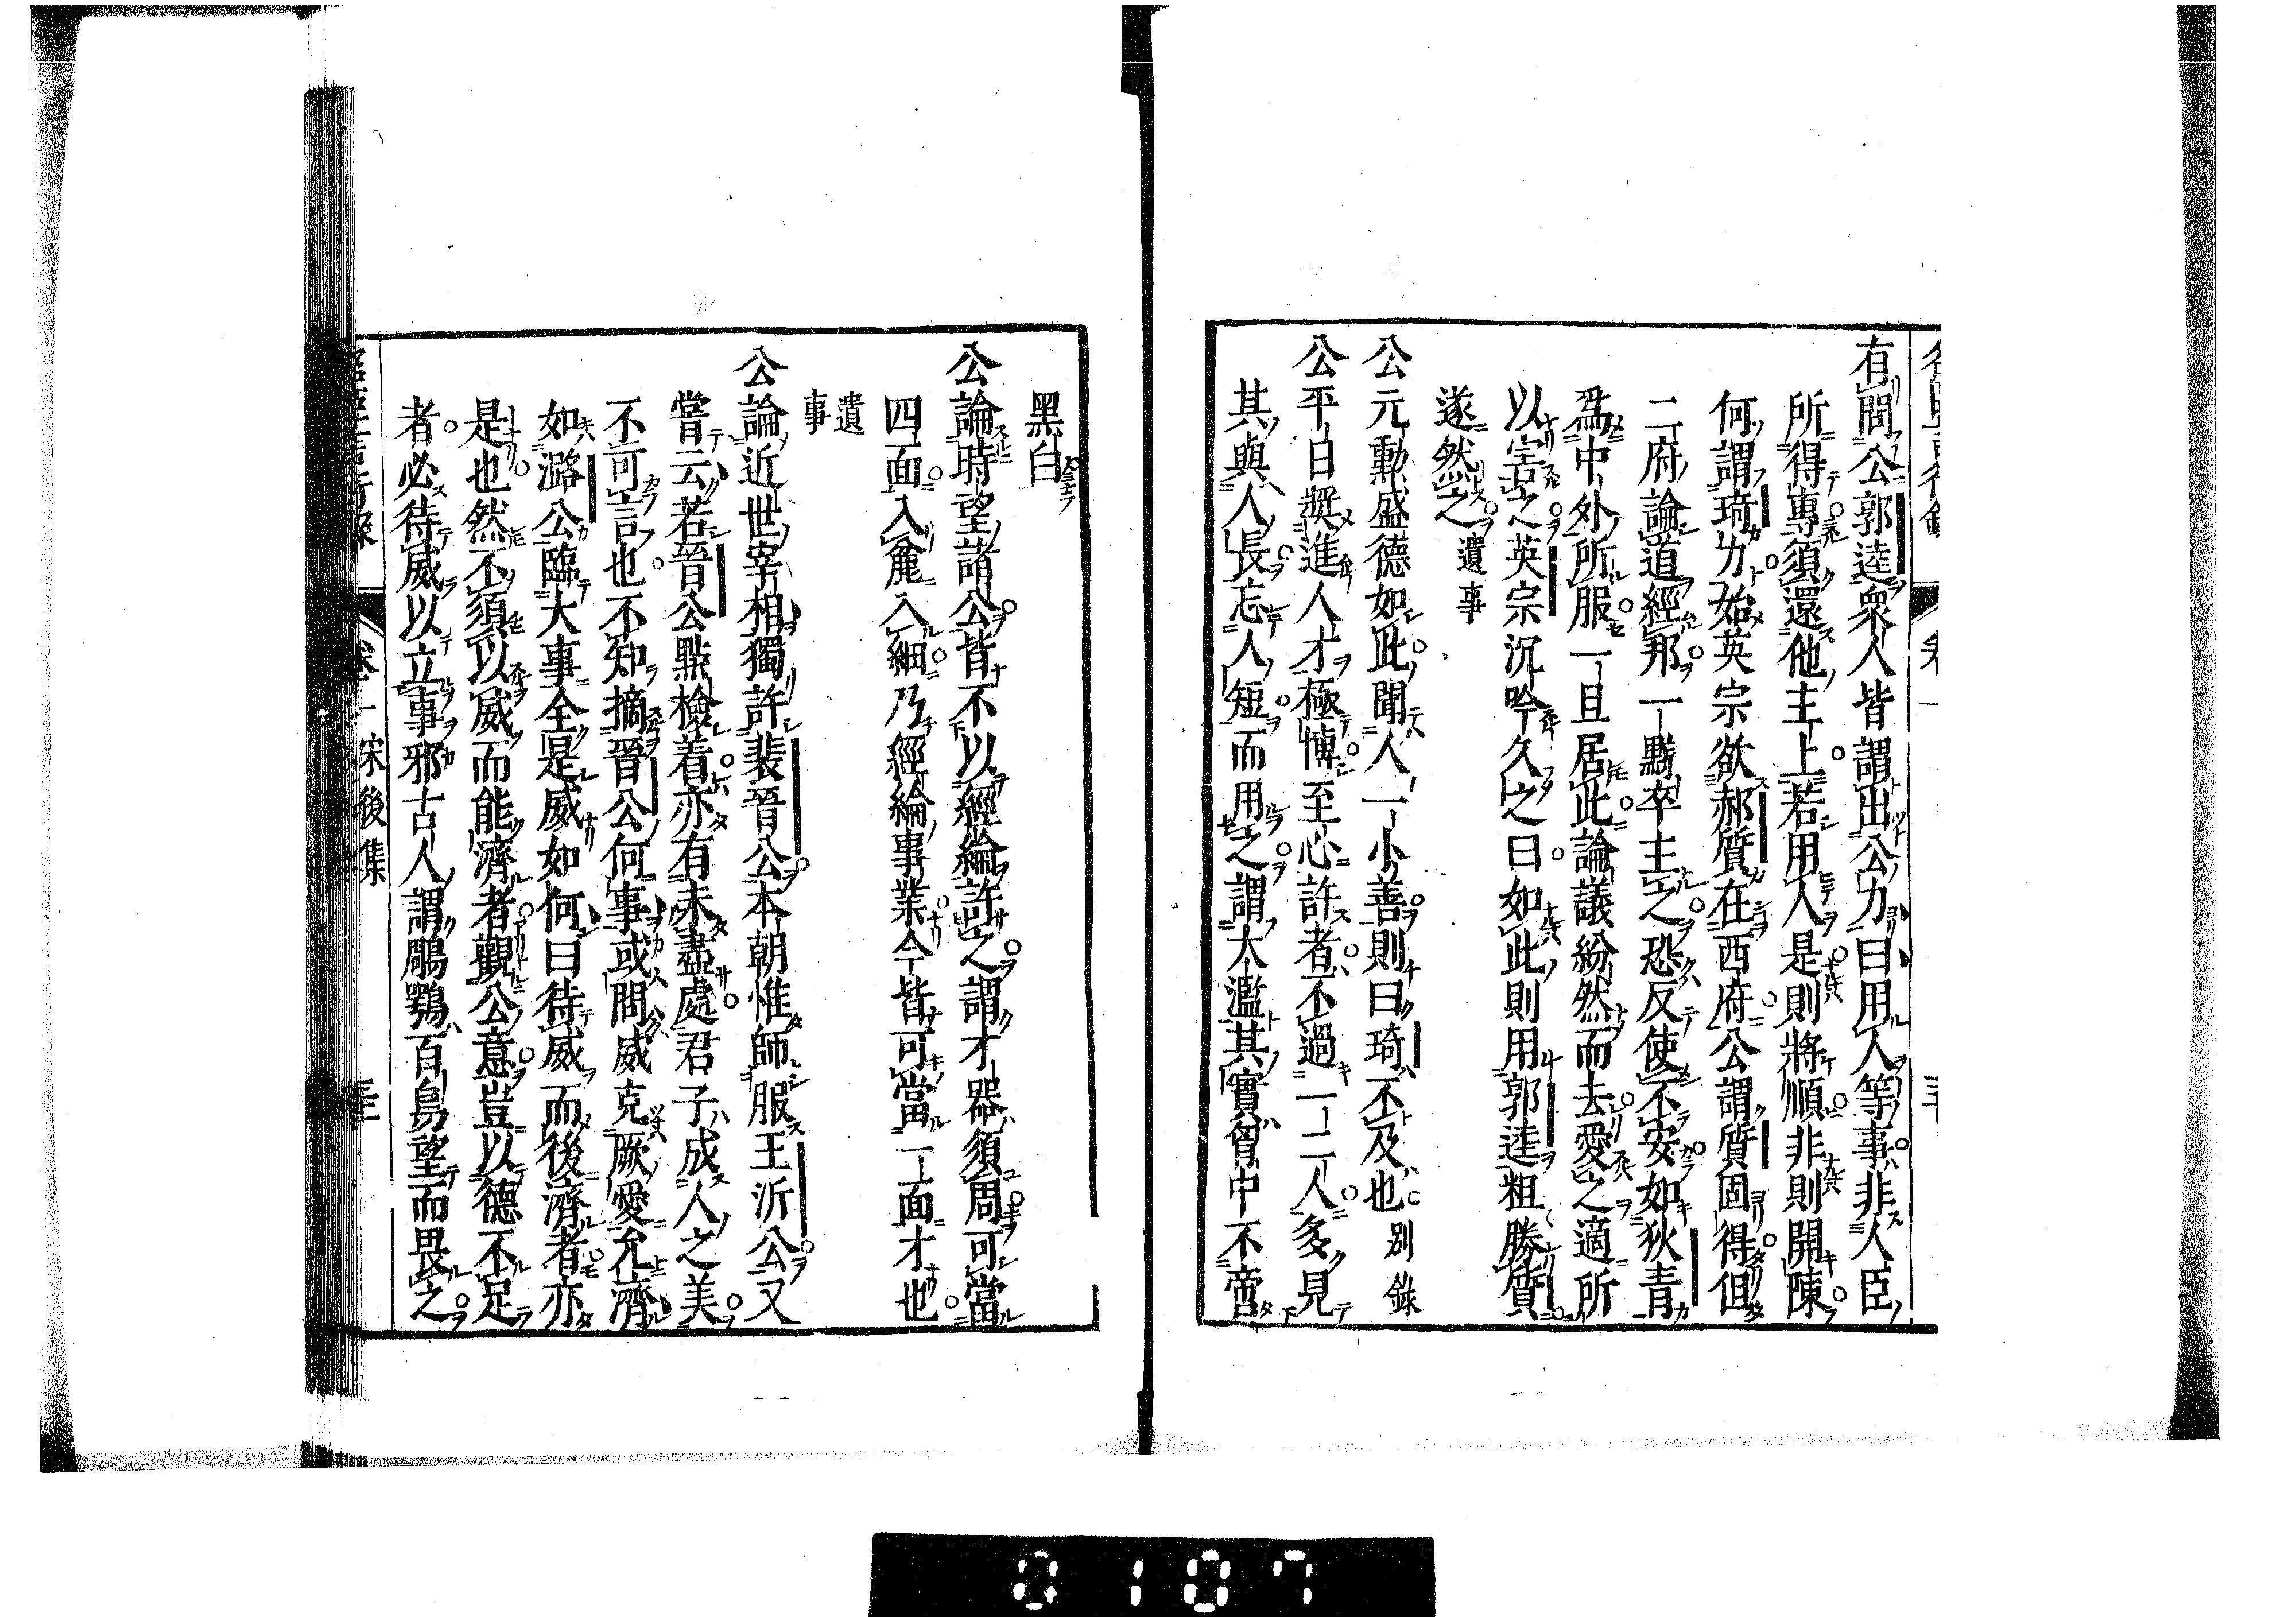 有問公郭逵衆人皆謂出公力曰用人等事非人臣
所得專須還他主上若用人是則將順非則開陳
何謂琦力始英宗欲郝質在西府公謂質固得但
二府論道經邦一黥卒主之恐反使不安如狄青
爲中外所服一旦居此論議紛然而去愛之適所
以害之英宗沉吟久之曰如此則用郭逵粗勝質
遂然之 遺事
公元勳盛德如此聞人一小善則曰琦不及也 別錄
公平日奬進人才極博至心許者不過一二人多見
其與人長忘人短而用之謂太濫其實胷中不啻
黑白
公論時望諸公皆不以經綸許之謂才器須周可當
四面入麄入細乃經綸事業今皆可當一面才也
遺事
公論近世宰相獨許裴晉公本朝惟師服王沂公又
嘗云若晉公點檢着亦有未盡處君子成人之美
不可言也不知摘晉公何事或問威克厥愛允濟
如潞公臨大事全是威如何曰待威而後濟者亦
是也然不須以威而能濟者觀公意豈以德不足
者必待威以立事邪古人謂鵰鶚百鳥望而畏之
宋後集
0107